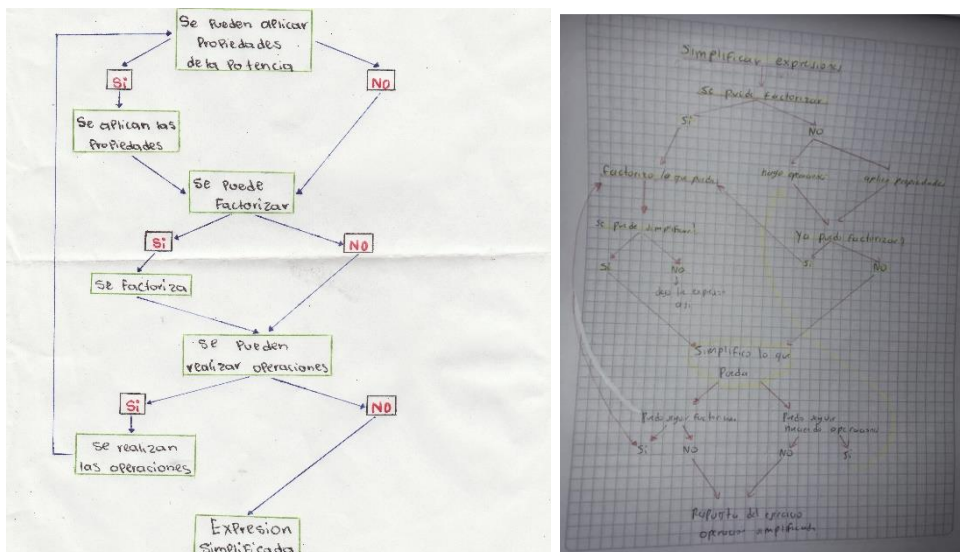 Se Pueden aplicar
Propiedades
de la Potencia
Si
NO
Se aplican las
Propiedades
Se Puede
Factorizar
Si
NO
Se Factoriza
Se Pueden
realizar operaciones
Si
NO
Se realizan
las operaciones
Expresion
Simplificada
Simplificar expresiones
Se puede factorizar
Si
NO
Factorizo lo que pueda
hago
aplico propiedades
Se puede simplificar
Ya pude factorizar?
Si
NO
Si
NO
dejo la expresion
asi
Simplifico lo que
Pueda
Puedo seguir factorizando
Puedo seguir
haciendo operaciones
Si
NO
NO
Si
del ejercicio